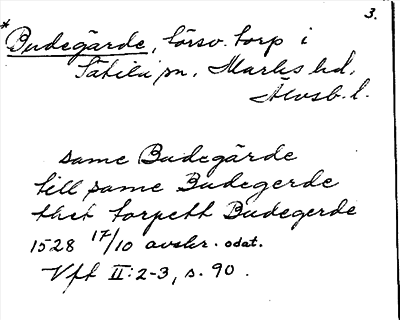 3.
* Budegärde, försv. torp i
Sätila sn, Marks hd,
Älvsb. l.
same Budegärde
till same Budegerde
thet torpett Budegerde
1528 17/10 avskr. odat.
Vft II:2-3, s. 90.